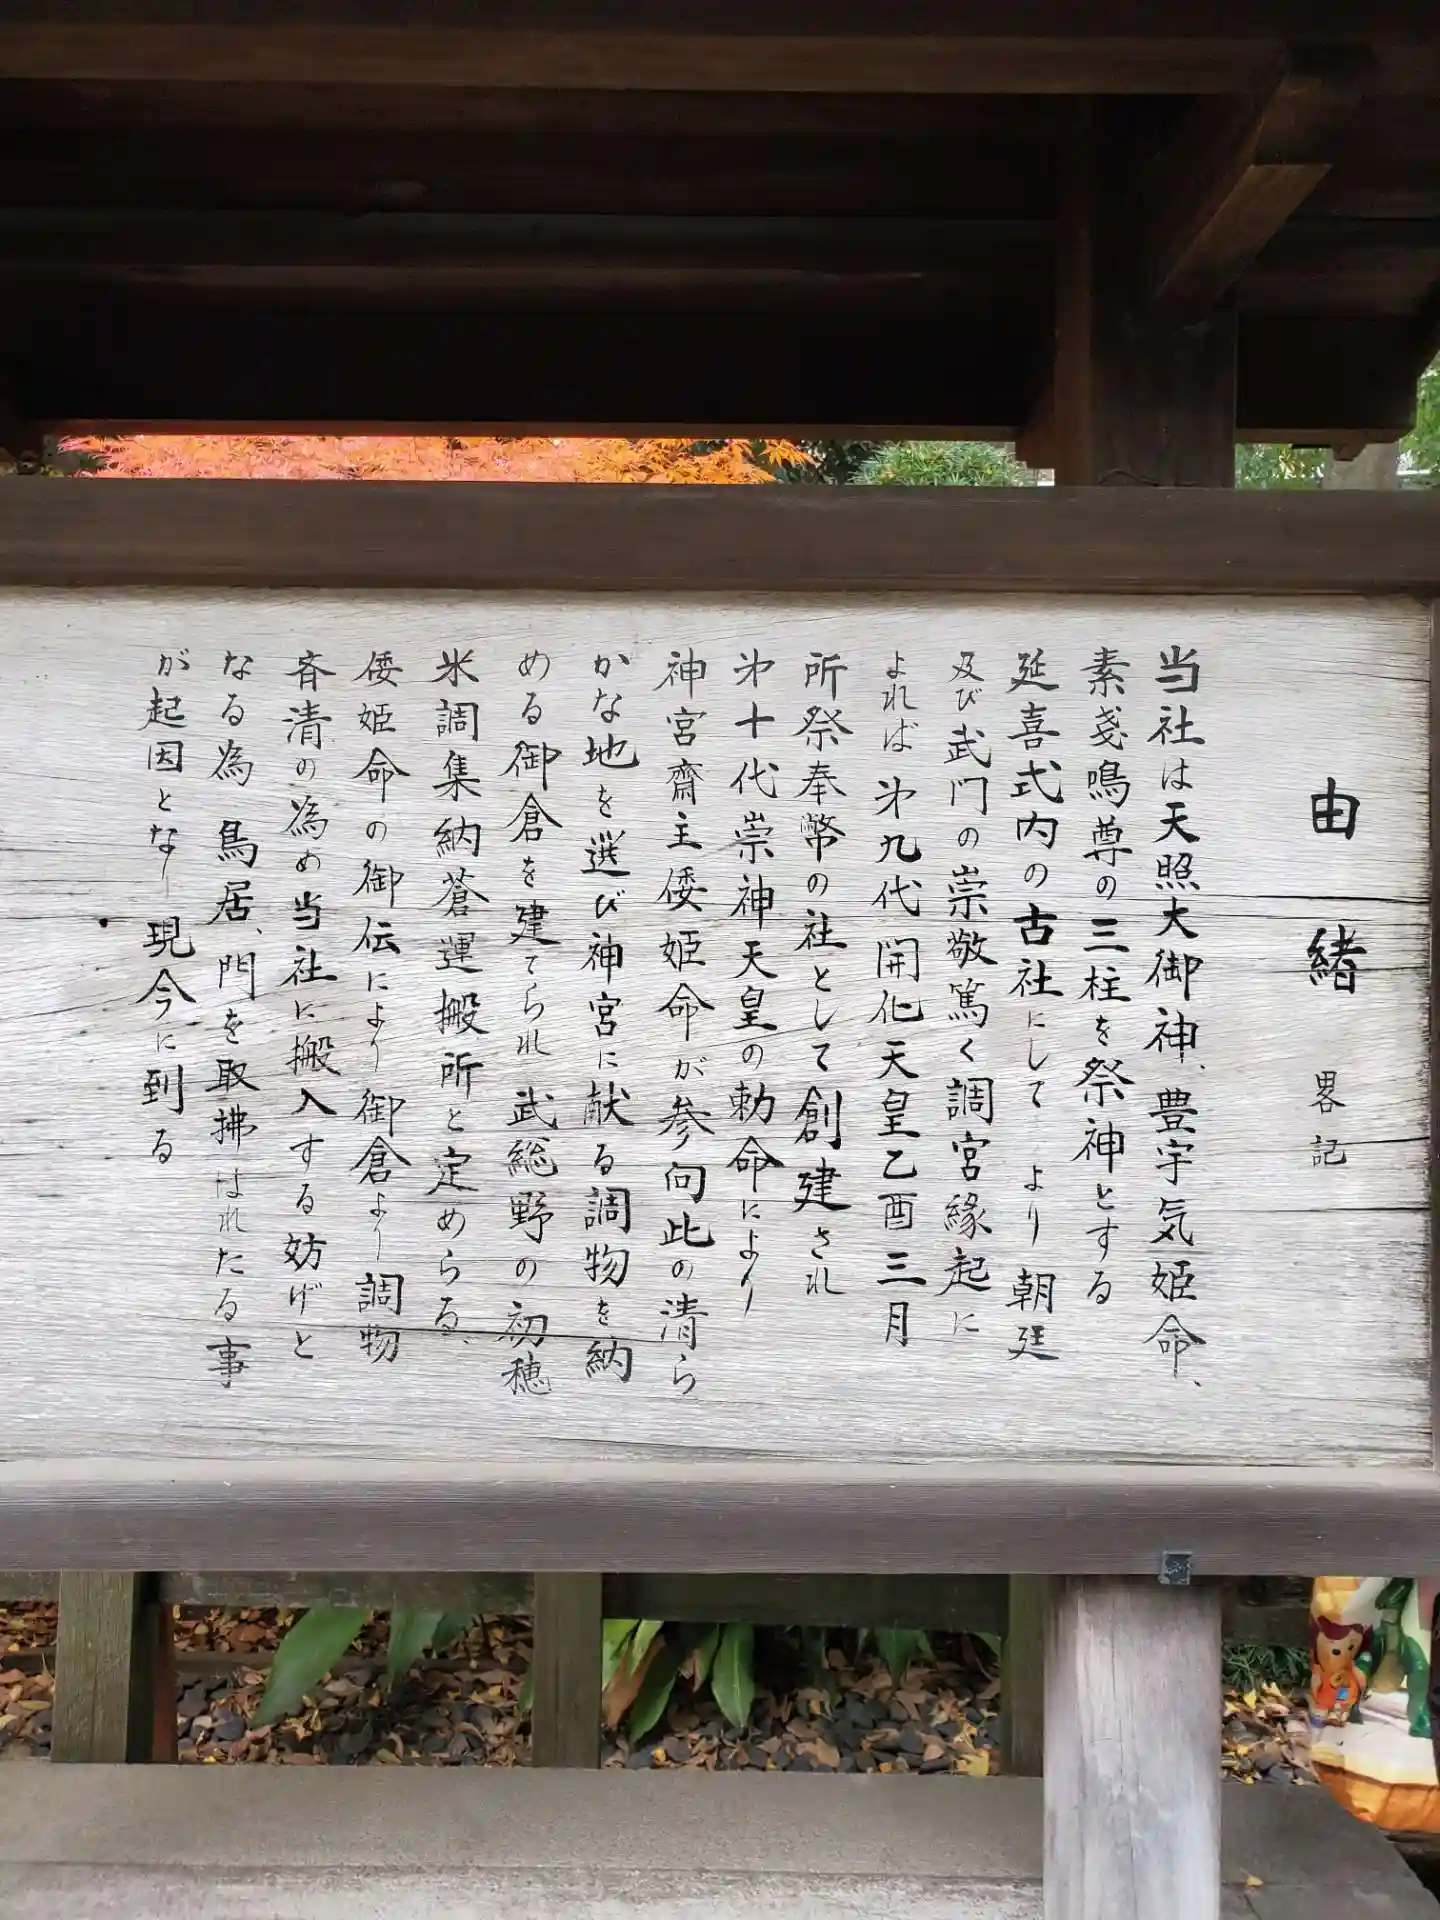 由緒 畧記
当社は天照大御神、豊宇気姫命、
素戔鳴尊の三柱を祭神とする
延喜式内の古社にして より 朝廷
及び武門の崇敬篤く調宮縁起に
よれば 㐧九代開化天皇乙酉三月
所祭奉幣の社として創建され
㐧十代崇神天皇の勅命により
神宮齋主倭姫命が参向此の清ら
かな地を選び神宮に献る調物を納
める御倉を建てられ 武総野の初穂
米調集納蒼運搬所と定めらる、
倭姫命の御伝により御倉より調物
斉清の為め当社に搬入する妨げと
なる為 鳥居、門を取拂はれたる事
が起因となり現今に到る